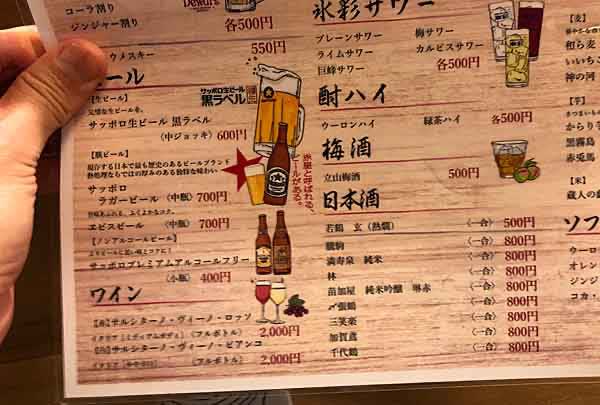 コーラ割り
ジンジャー割り
Dewar's
各500円
ウメスキー
550円
ビール
【生ビール】
完璧な生ビールを。
サッポロ生ビール 黒ラベル
〈中ジョッキ〉 600円
サッポロ生ビール
黒ラベル
【瓶ビール】
現存する日本で最も歴史のあるビールブランド
熱処理ならではの厚みのある独特な味わい
サッポロ
ラガービール 〈中瓶〉 700円
ヱビスビール 〈中瓶〉 700円
【ノンアルコールビール】
サッポロプレミアムアルコールフリー
〈小瓶〉 400円
赤星と呼ばれる、
ビールがある。
ワイン
【赤】サルシターノ・ヴィーノ・ロッソ
イタリア [ミディアムボディ] 〈フルボトル〉 2,000円
【白】サルシターノ・ヴィーノ・ビアンコ
イタリア 〈フルボトル〉 2,000円
氷彩サワー
プレーンサワー 梅サワー
ライムサワー カルピスサワー
巨峰サワー 各500円
酎ハイ
ウーロンハイ 緑茶ハイ 各500円
梅酒
立山梅酒 500円
日本酒
若鶴 玄(熱燗) 〈一合〉 500円
勝駒 〈一合〉 800円
満寿泉 純米 〈一合〉 800円
林 〈一合〉 800円
苗加屋 純米吟醸 琳赤 〈一合〉 800円
〆張鶴 〈一合〉 800円
三笑楽 〈一合〉 800円
加賀鳶 〈一合〉 800円
千代鶴 〈一合〉 800円
【麦】
和ら麦
いいちこ
神の河
【芋】
からり芋
黒霧島
赤兎馬
【米】
蔵人の
ソフ
ウーロ
オレン
ジンジ
コカ・